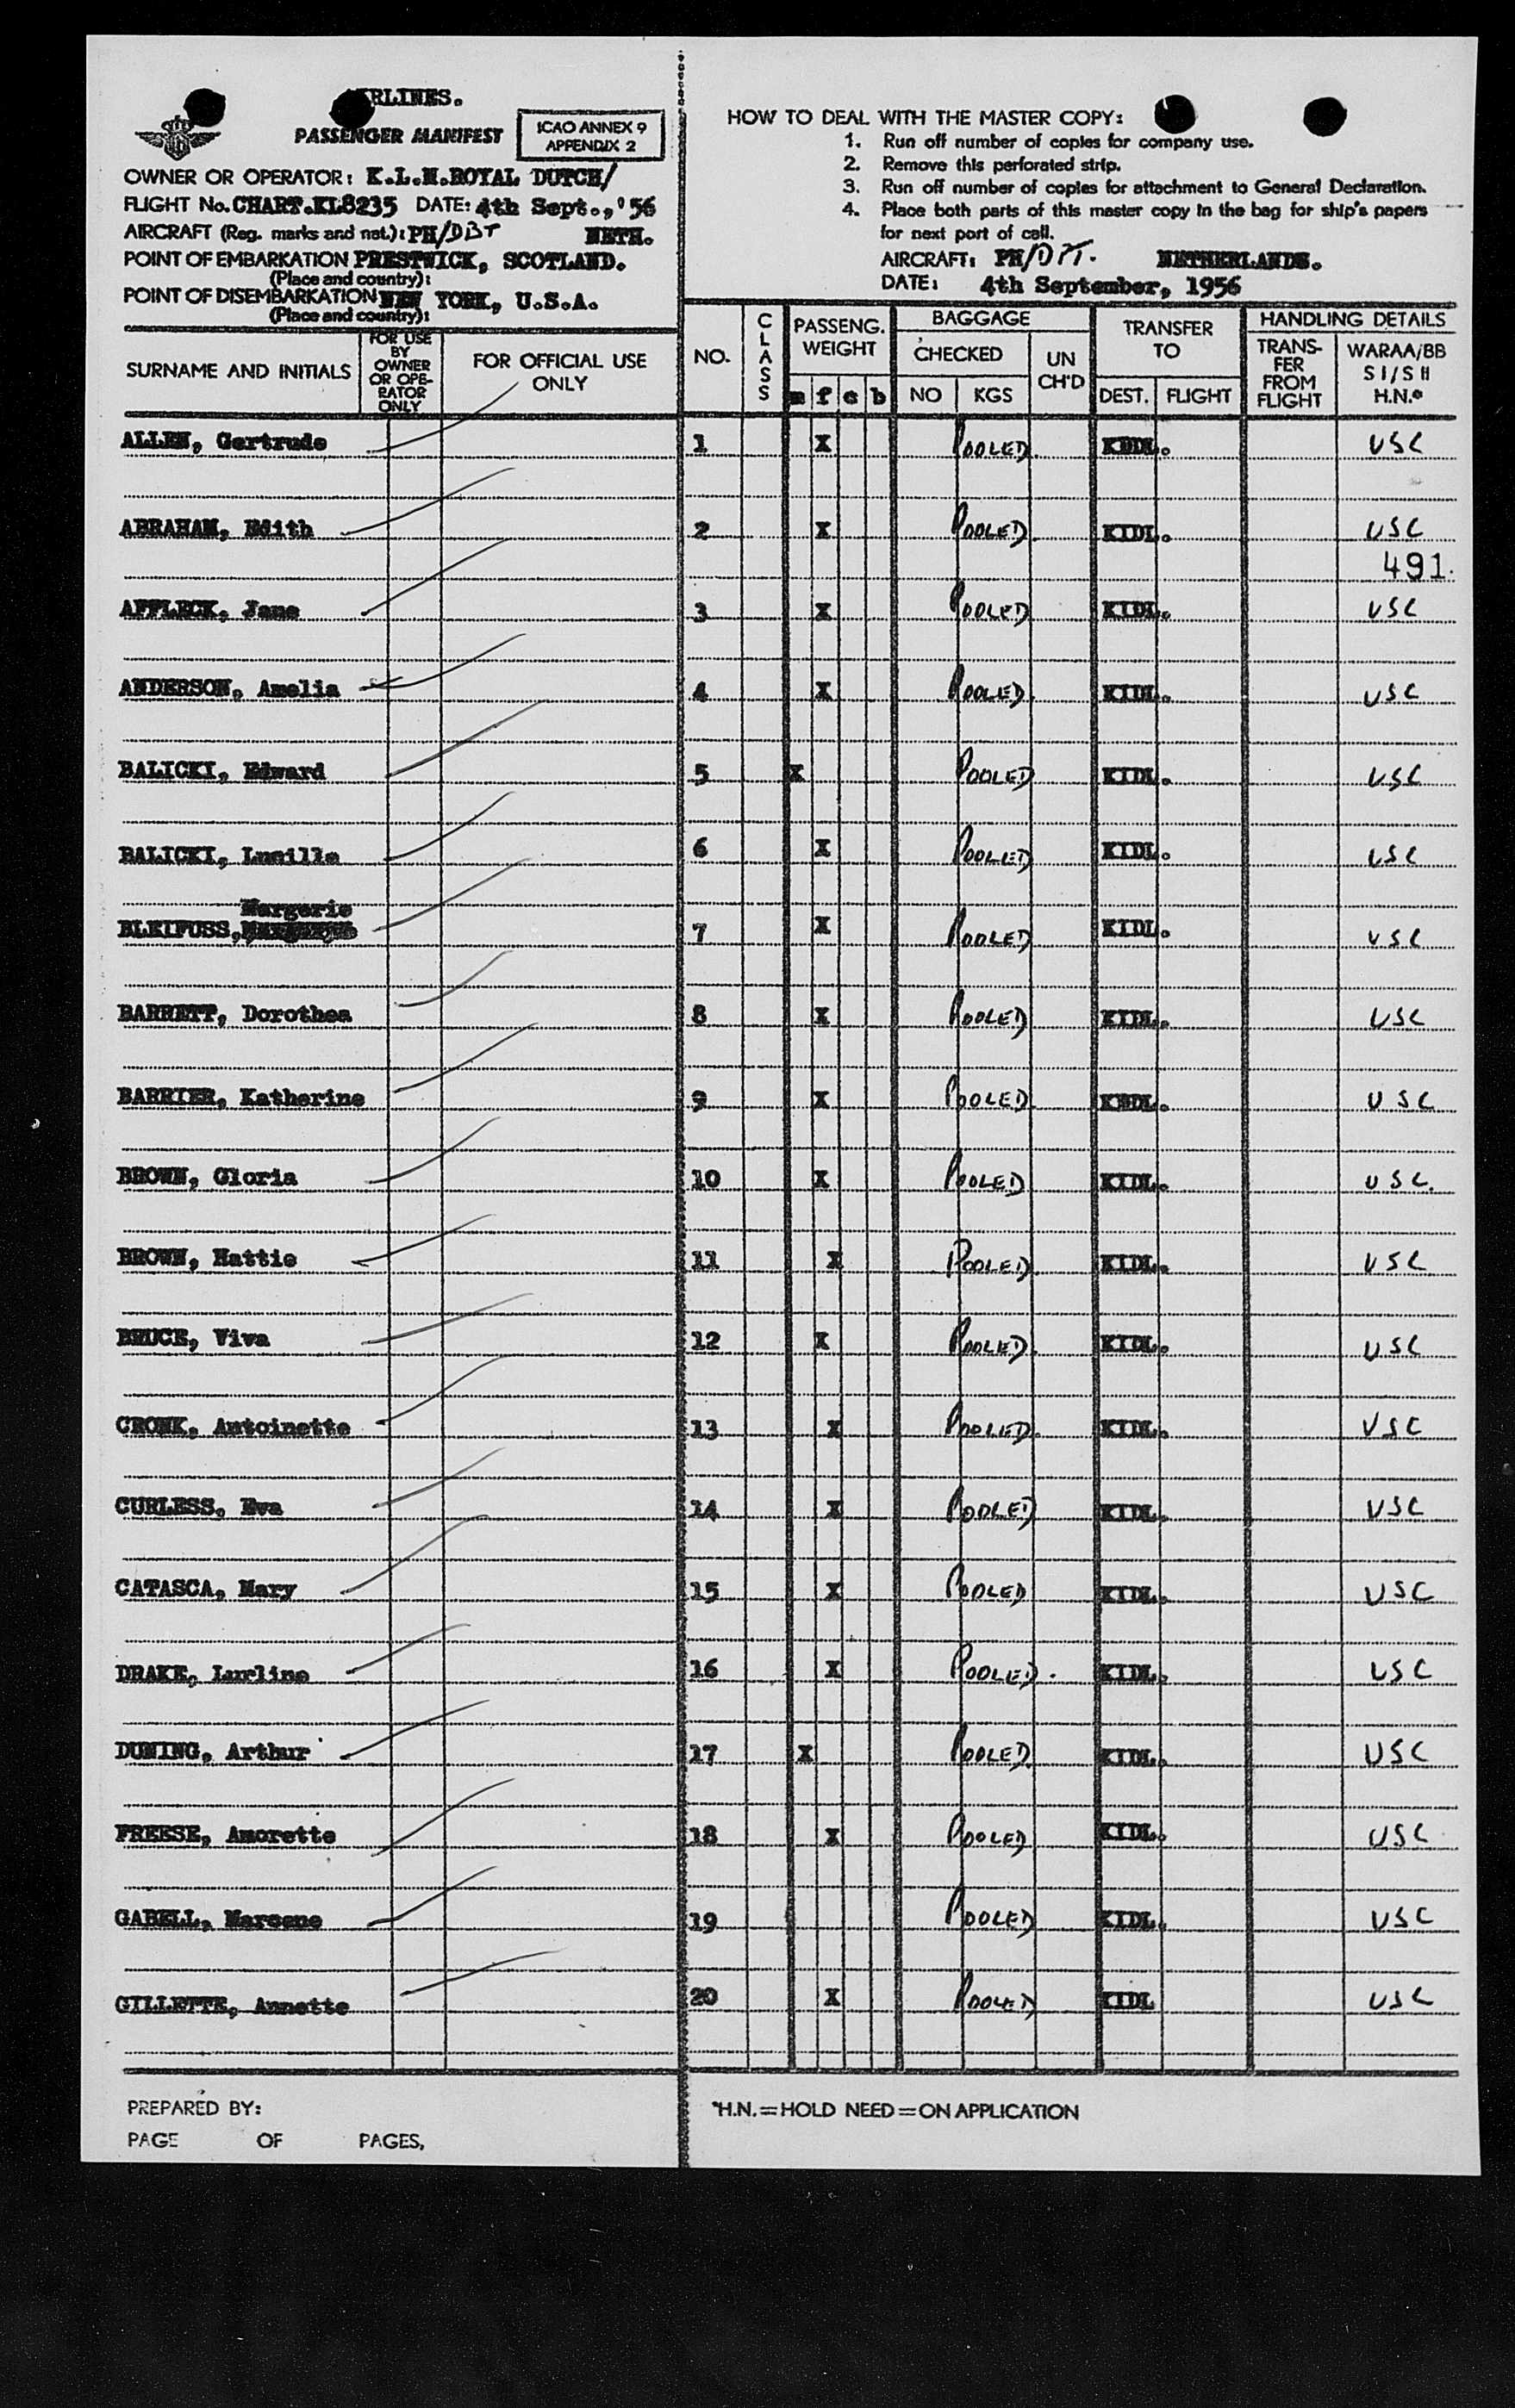 RLINES.
PASSENGER MANIFEST
ICAO ANNEX 9
APPENDIX 2
OWNER OR OPERATOR: K.L.M.ROYAL DUTCH/
FLIGHT No. CHART.KL8235 DATE: 4th Sept.,'56
AIRCRAFT (Reg. marks and nat.): PH/DBT NETH.
POINT OF EMBARKATION PRESTWICK, SCOTLAND.
(Place and country):
POINT OF DISEMBARKATION NEW YORK, U.S.A.
(Place and country):
HOW TO DEAL WITH THE MASTER COPY:
1. Run off number of copies for company use.
2. Remove this perforated strip.
3. Run off number of copies for attachment to General Declaration.
4. Place both parts of this master copy in the bag for ship's papers
for next port of call.
AIRCRAFT: PH/ NETHERLANDS.
DATE: 4th September, 1956
SURNAME AND INITIALS
FOR USE
BY
OWNER
OR OPE-
RATOR
ONLY
FOR OFFICIAL USE
ONLY
NO.
CLASS
PASSENG.
WEIGHT
m f c b
BAGGAGE
CHECKED
NO KGS
UN
CH'D
TRANSFER
TO
DEST. FLIGHT
HANDLING DETAILS
TRANS-
FER
FROM
FLIGHT
WARAA/BB
S I/S II
H.N.*
ALLEN, Gertrude 1 X POOLED KIDL. USC
ABRAHAM, Edith 2 X POOLED KIDL. USC
491.
AFFLECK, Jane 3 X POOLED KIDL. USC
ANDERSON, Amelia 4 X POOLED KIDL. USC
BALICKI, Edward 5 X POOLED KIDL. USC
BALICKI, Lucille 6 X POOLED KIDL. USC
Margerie
BLEIFUSS, 7 X POOLED KIDL. USC
BARRETT, Dorothea 8 X POOLED KIDL. USC
BARRIER, Katherine 9 X POOLED KIDL. USC
BROWN, Gloria 10 X POOLED KIDL. USC.
BROWN, Hattie 11 X POOLED KIDL. USC
BRUCE, Viva 12 X POOLED KIDL. USC
CRONK, Antoinette 13 X POOLED KIDL. USC
CURLESS, Eva 14 X POOLED KIDL. USC
CATASCA, Mary 15 X POOLED KIDL. USC
DRAKE, Lurline 16 X POOLED. KIDL. USC
DUMING, Arthur 17 X POOLED KIDL. USC
FREESE, Amorette 18 X POOLED KIDL. USC
GABELL, Marcene 19 POOLED KIDL. USC
GILLETTE, Annette 20 X POOLED KIDL USC
PREPARED BY:
PAGE OF PAGES,
*H.N.=HOLD NEED=ON APPLICATION